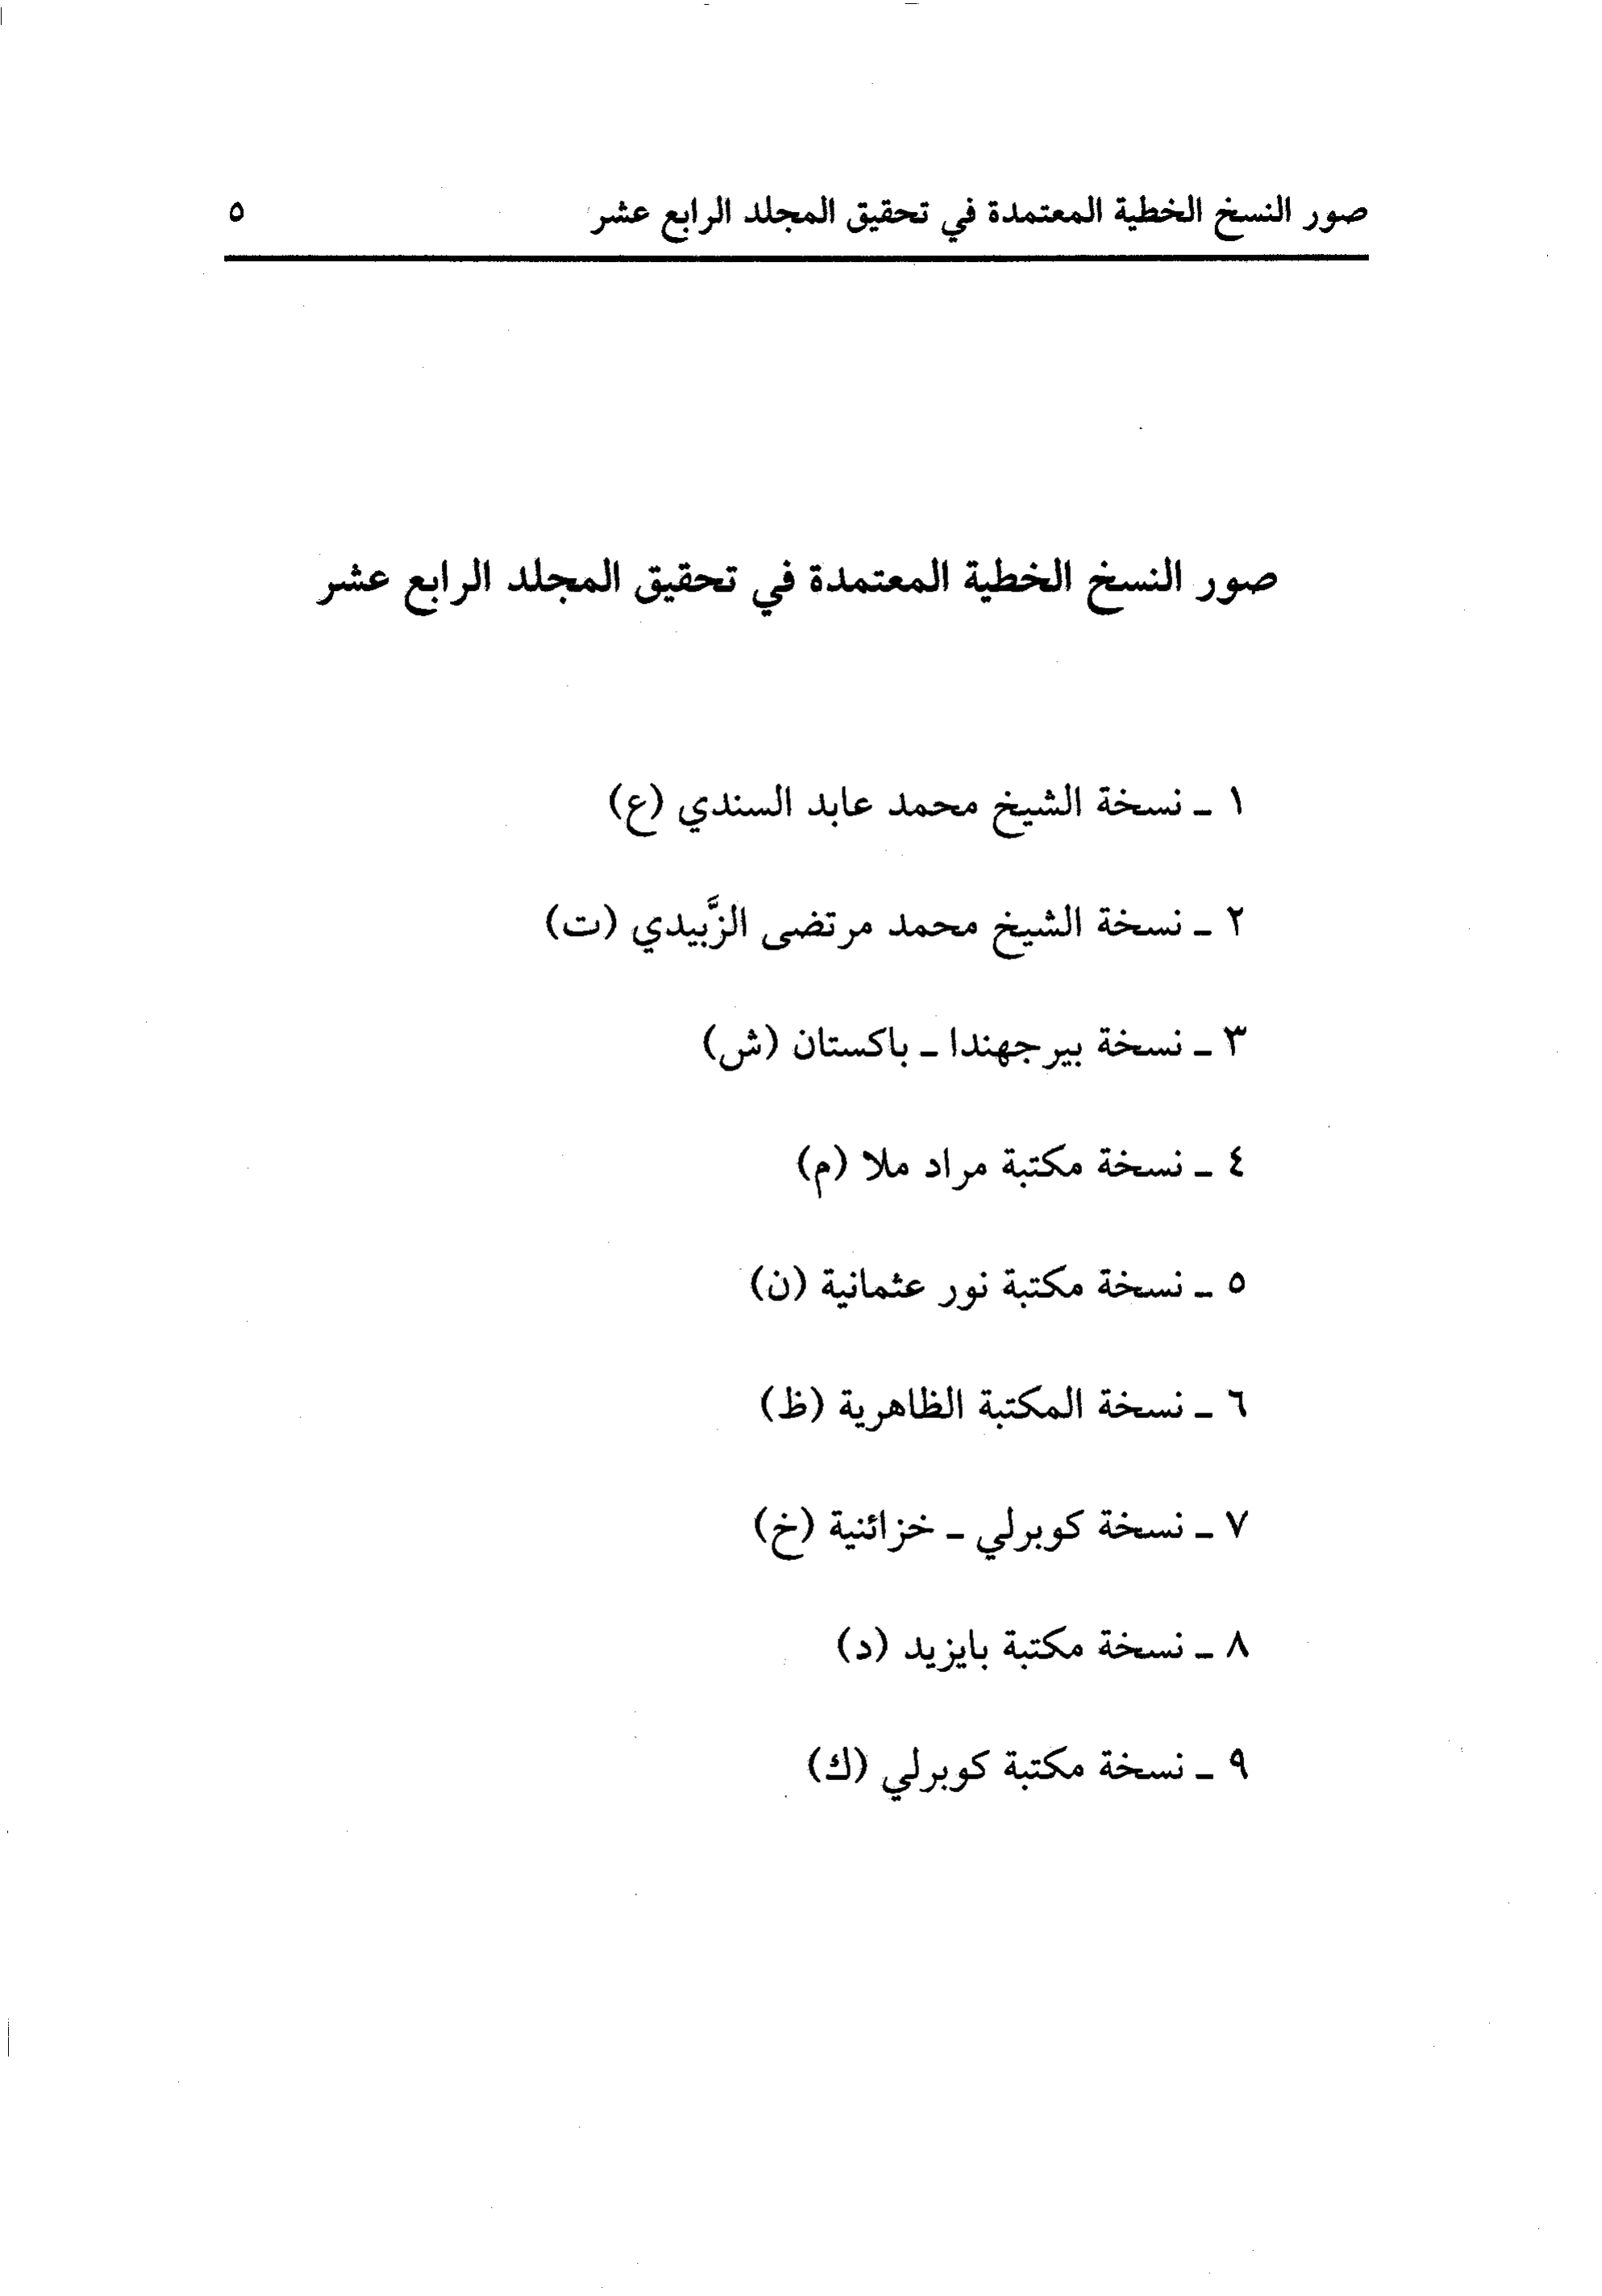 صور النسخ الخطية المعتمدة في تحقيق المجلد الرابع عشر ٥
صور النسخ الخطية المعتمدة في تحقيق المجلد الرابع عشر
١ ـ نسخة الشيخ محمد عابد السندي (ع)
٢ ـ نسخة الشيخ محمد مرتضى الزَّبيدي (ت)
٣ ـ نسخة بيرجهندا ـ باكستان (ش)
٤ ـ نسخة مكتبة مراد ملا (م)
٥ ـ نسخة مكتبة نور عثمانية (ن)
٦ ـ نسخة المكتبة الظاهرية (ظ)
٧ ـ نسخة كوبرلي ـ خزائنية (خ)
٨ ـ نسخة مكتبة بايزيد (د)
٩ ـ نسخة مكتبة كوبرلي (ك)